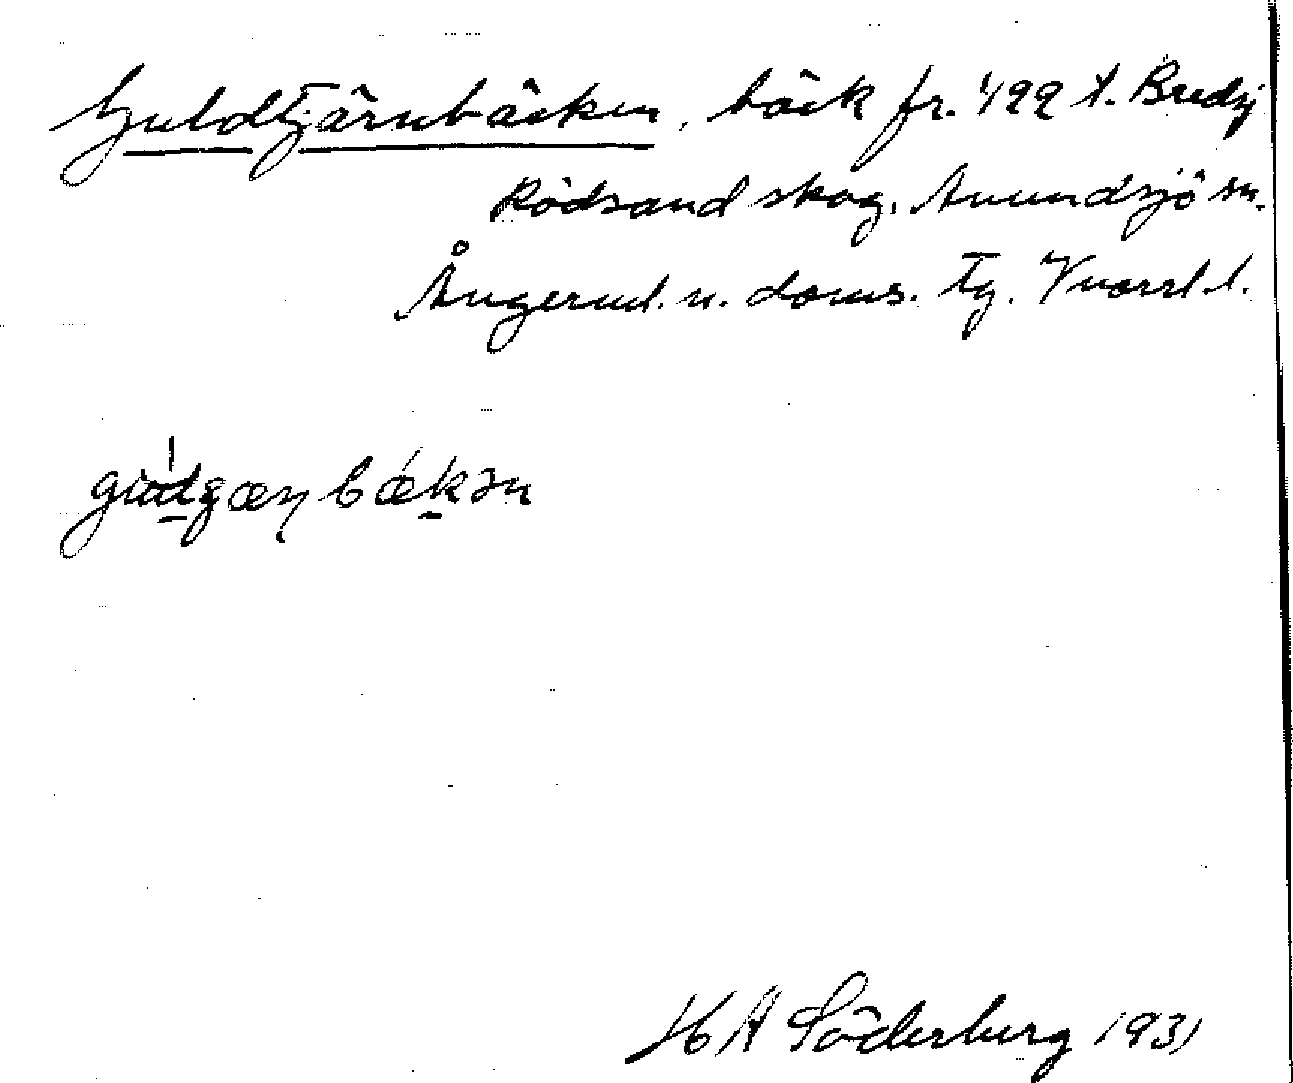 Guldtjärnbäcken, bäck fr. 422 t. Bredsj
Rödsand skog. Anundsjö sn.
Ångerml. n. doms. Tg. Vnorrl. l.
bǽkən
H A Söderberg 1931